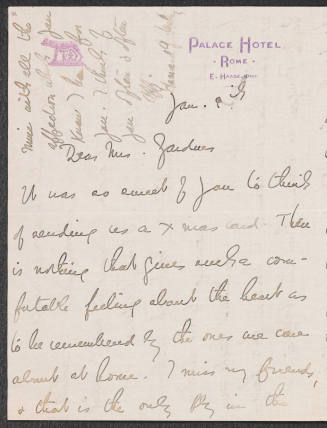 PALACE HOTEL
• ROME •
Jan. 9th
Dear Mrs. Gardner
It was as sweet of you to think
of sending us a Xmas card. There
is nothing that gives such a com-
fortable feeling about the heart as
to be remembered by the ones we care
about at home. I miss my friends,
& that is the only fly in the
mine with all the
affection which you
know I have for
you. I think of
you often & often